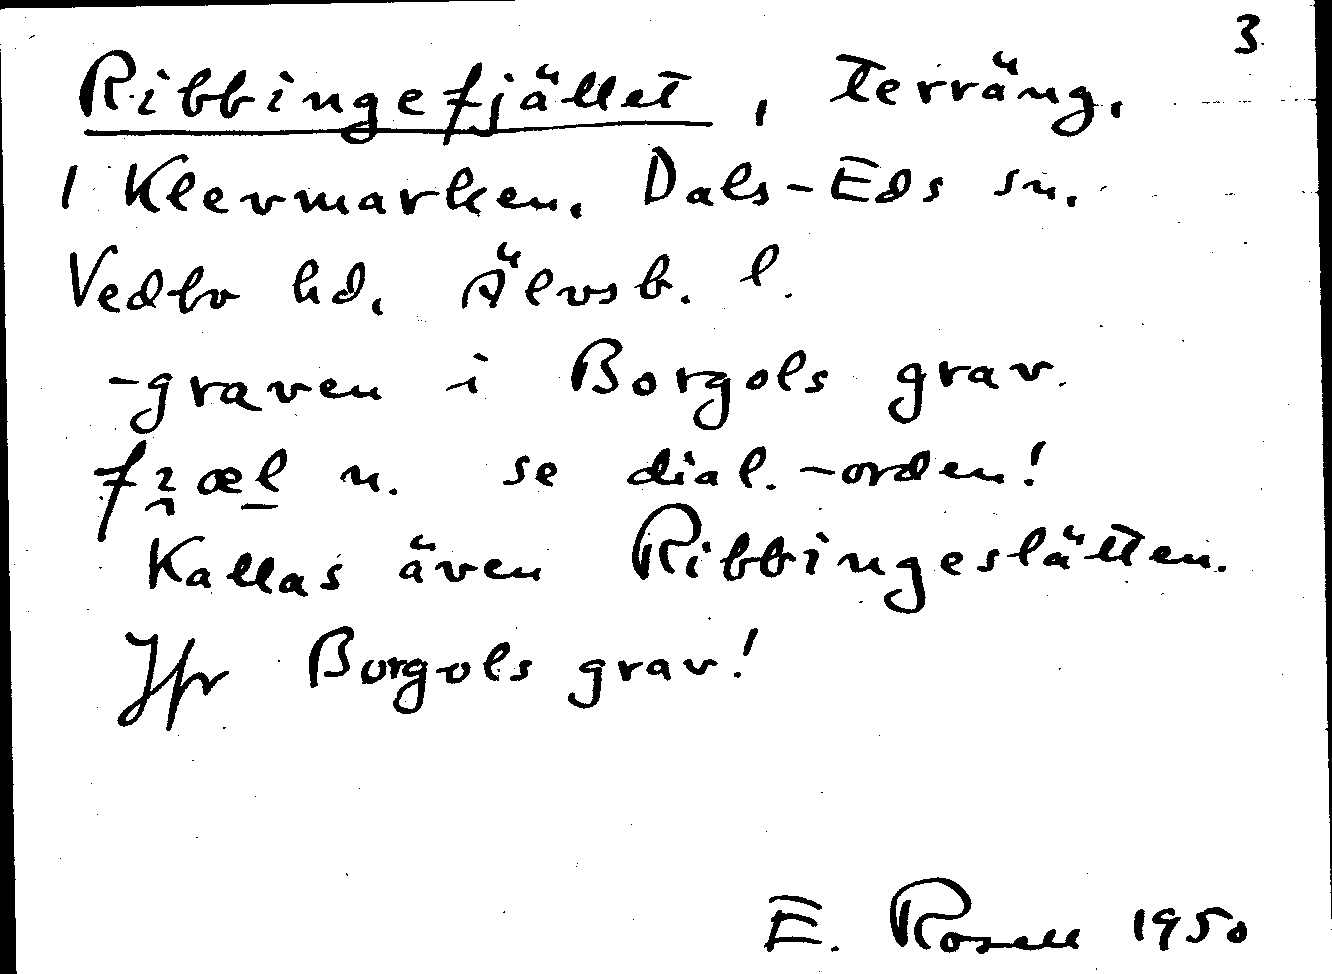 3
Ribbingefjället, terräng.
1 Klevmarken. Dals-Eds sn.
Vedbo hd. Älvsb. l.
-graven i Borgols grav.
se dial.-orden!
Kallas även Ribbingeslätten.
Jfr Borgols grav!
E. Rosell 1950